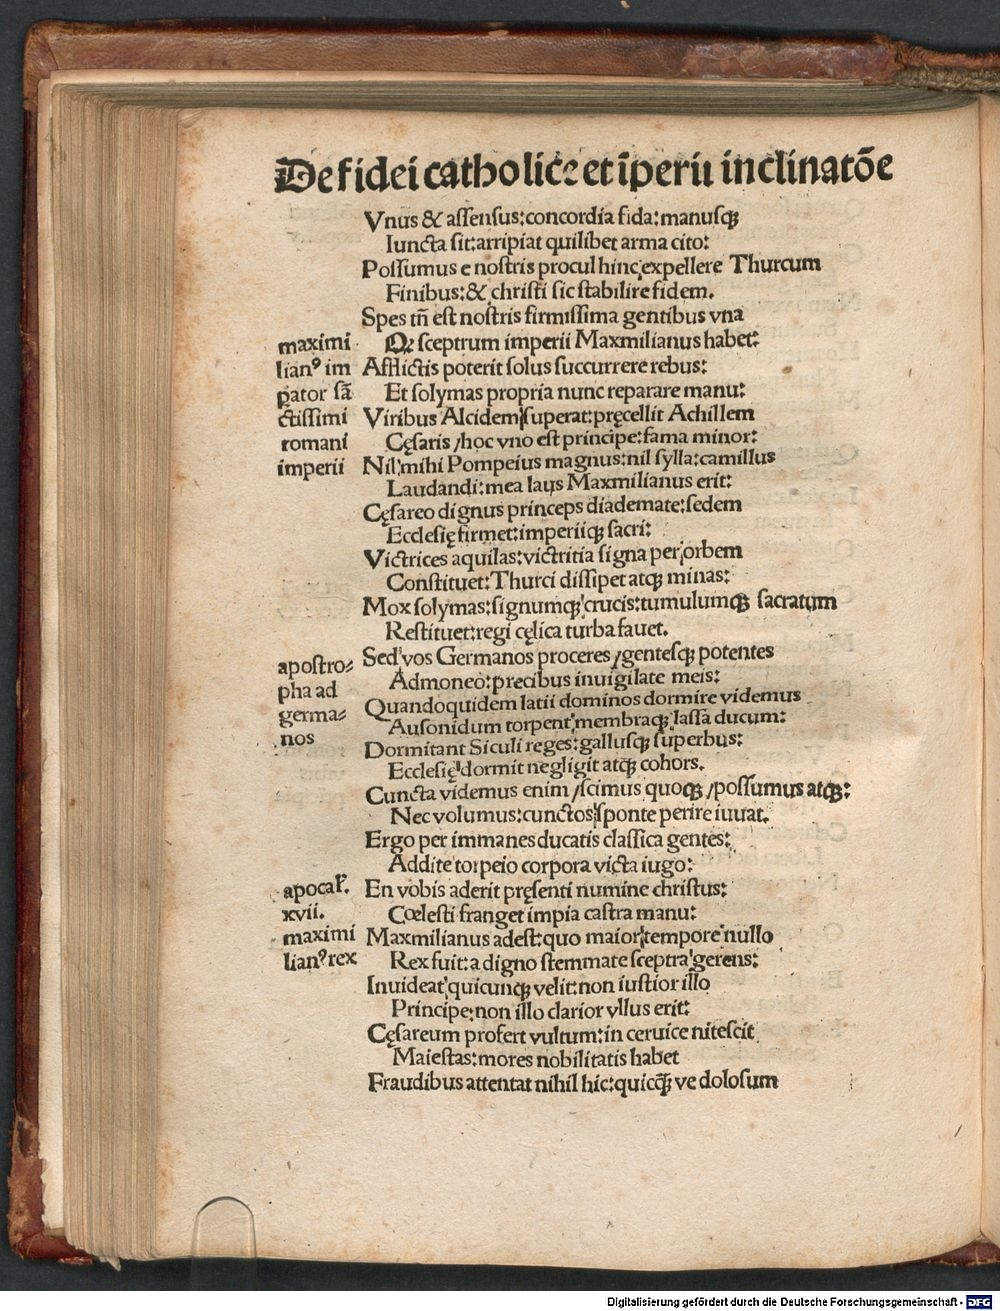 De fidei catholice et īperii inclinatōe
Vnus & assensus:concordia fida:manusqꝫ
Iuncta sit:arripiat quilibet arma cito:
Possumus e nostris procul hinc expellere Thurcum
Finibus:& christi sic stabilire fidem.
Spes tn̄ est nostris firmissima gentibus vna
maximi
Qꝫ sceptrum imperii Maxmilianus habet:
lianꝰ im
Afflictis poterit solus succurrere rebus:
ꝑator sā
Et solymas propria nunc reparare manu:
ctissimi
Viribus Alcidem superat:pręcellit Achillem
romani
Cęsaris /hoc vno est principe:fama minor:
imperii
Nil mihi Pompeius magnus:nil sylla:camillus
Laudandi:mea laus Maxmilianus erit:
Cęsareo dignus princeps diademate:sedem
Ecclesię firmet:imperiiqꝫ sacri:
Victrices aquilas:victritia signa per orbem
Constituet:Thurci dissipet atqꝫ minas:
Mox solymas:signumqꝫ crucis:tumulumqꝫ sacratum
Restituet:regi cęlica turba fauet.
apostro-
Sed vos Germanos proceres /gentesqꝫ potentes
pha ad
Admoneo:precibus inuigilate meis:
germa-
Quandoquidem latii dominos dormire videmus
nos
Ausonidum torpent membraqꝫ lassa ducum:
Dormitant Siculi reges:gallusqꝫ superbus:
Ecclesię dormit negligit atqꝫ cohors.
Cuncta videmus enim /scimus quoqꝫ /possumus atqꝫ:
Nec volumus:cunctos sponte perire iuuat.
Ergo per immanes ducatis classica gentes:
Addite torpeio corpora victa iugo:
apocal.
En vobis aderit pręsenti numine christus:
xvii.
Cœlesti franget impia castra manu:
maximi
Maxmilianus adest:quo maior tempore nullo
lianꝰ rex
Rex fuit:a digno stemmate sceptra gerens:
Inuideat quicunqꝫ velit:non iustior illo
Principe:non illo clarior vllus erit:
Cęsareum profert vultum:in ceruice nitescit
Maiestas:mores nobilitatis habet
Fraudibus attentat nihil hic:quicqꝫ ve dolosum
Digitalisierung gefördert durch die Deutsche Forschungsgemeinschaft - DFG